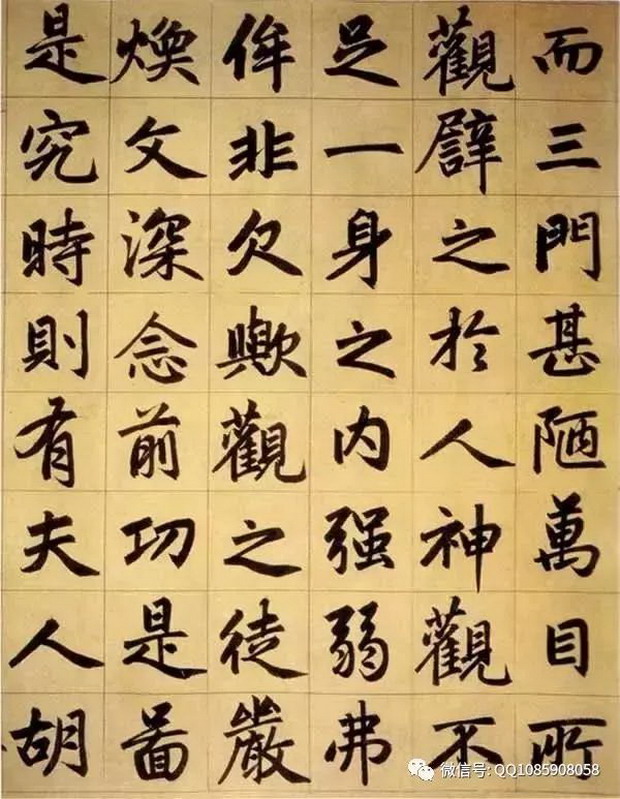 而三門甚陋萬目所
觀譬之於人神觀不
足一身之内强弱弗
侔非欠歟觀之徒嚴
煥文深念前功是啚
是究時則有夫人胡
微信号: QQ1085908058